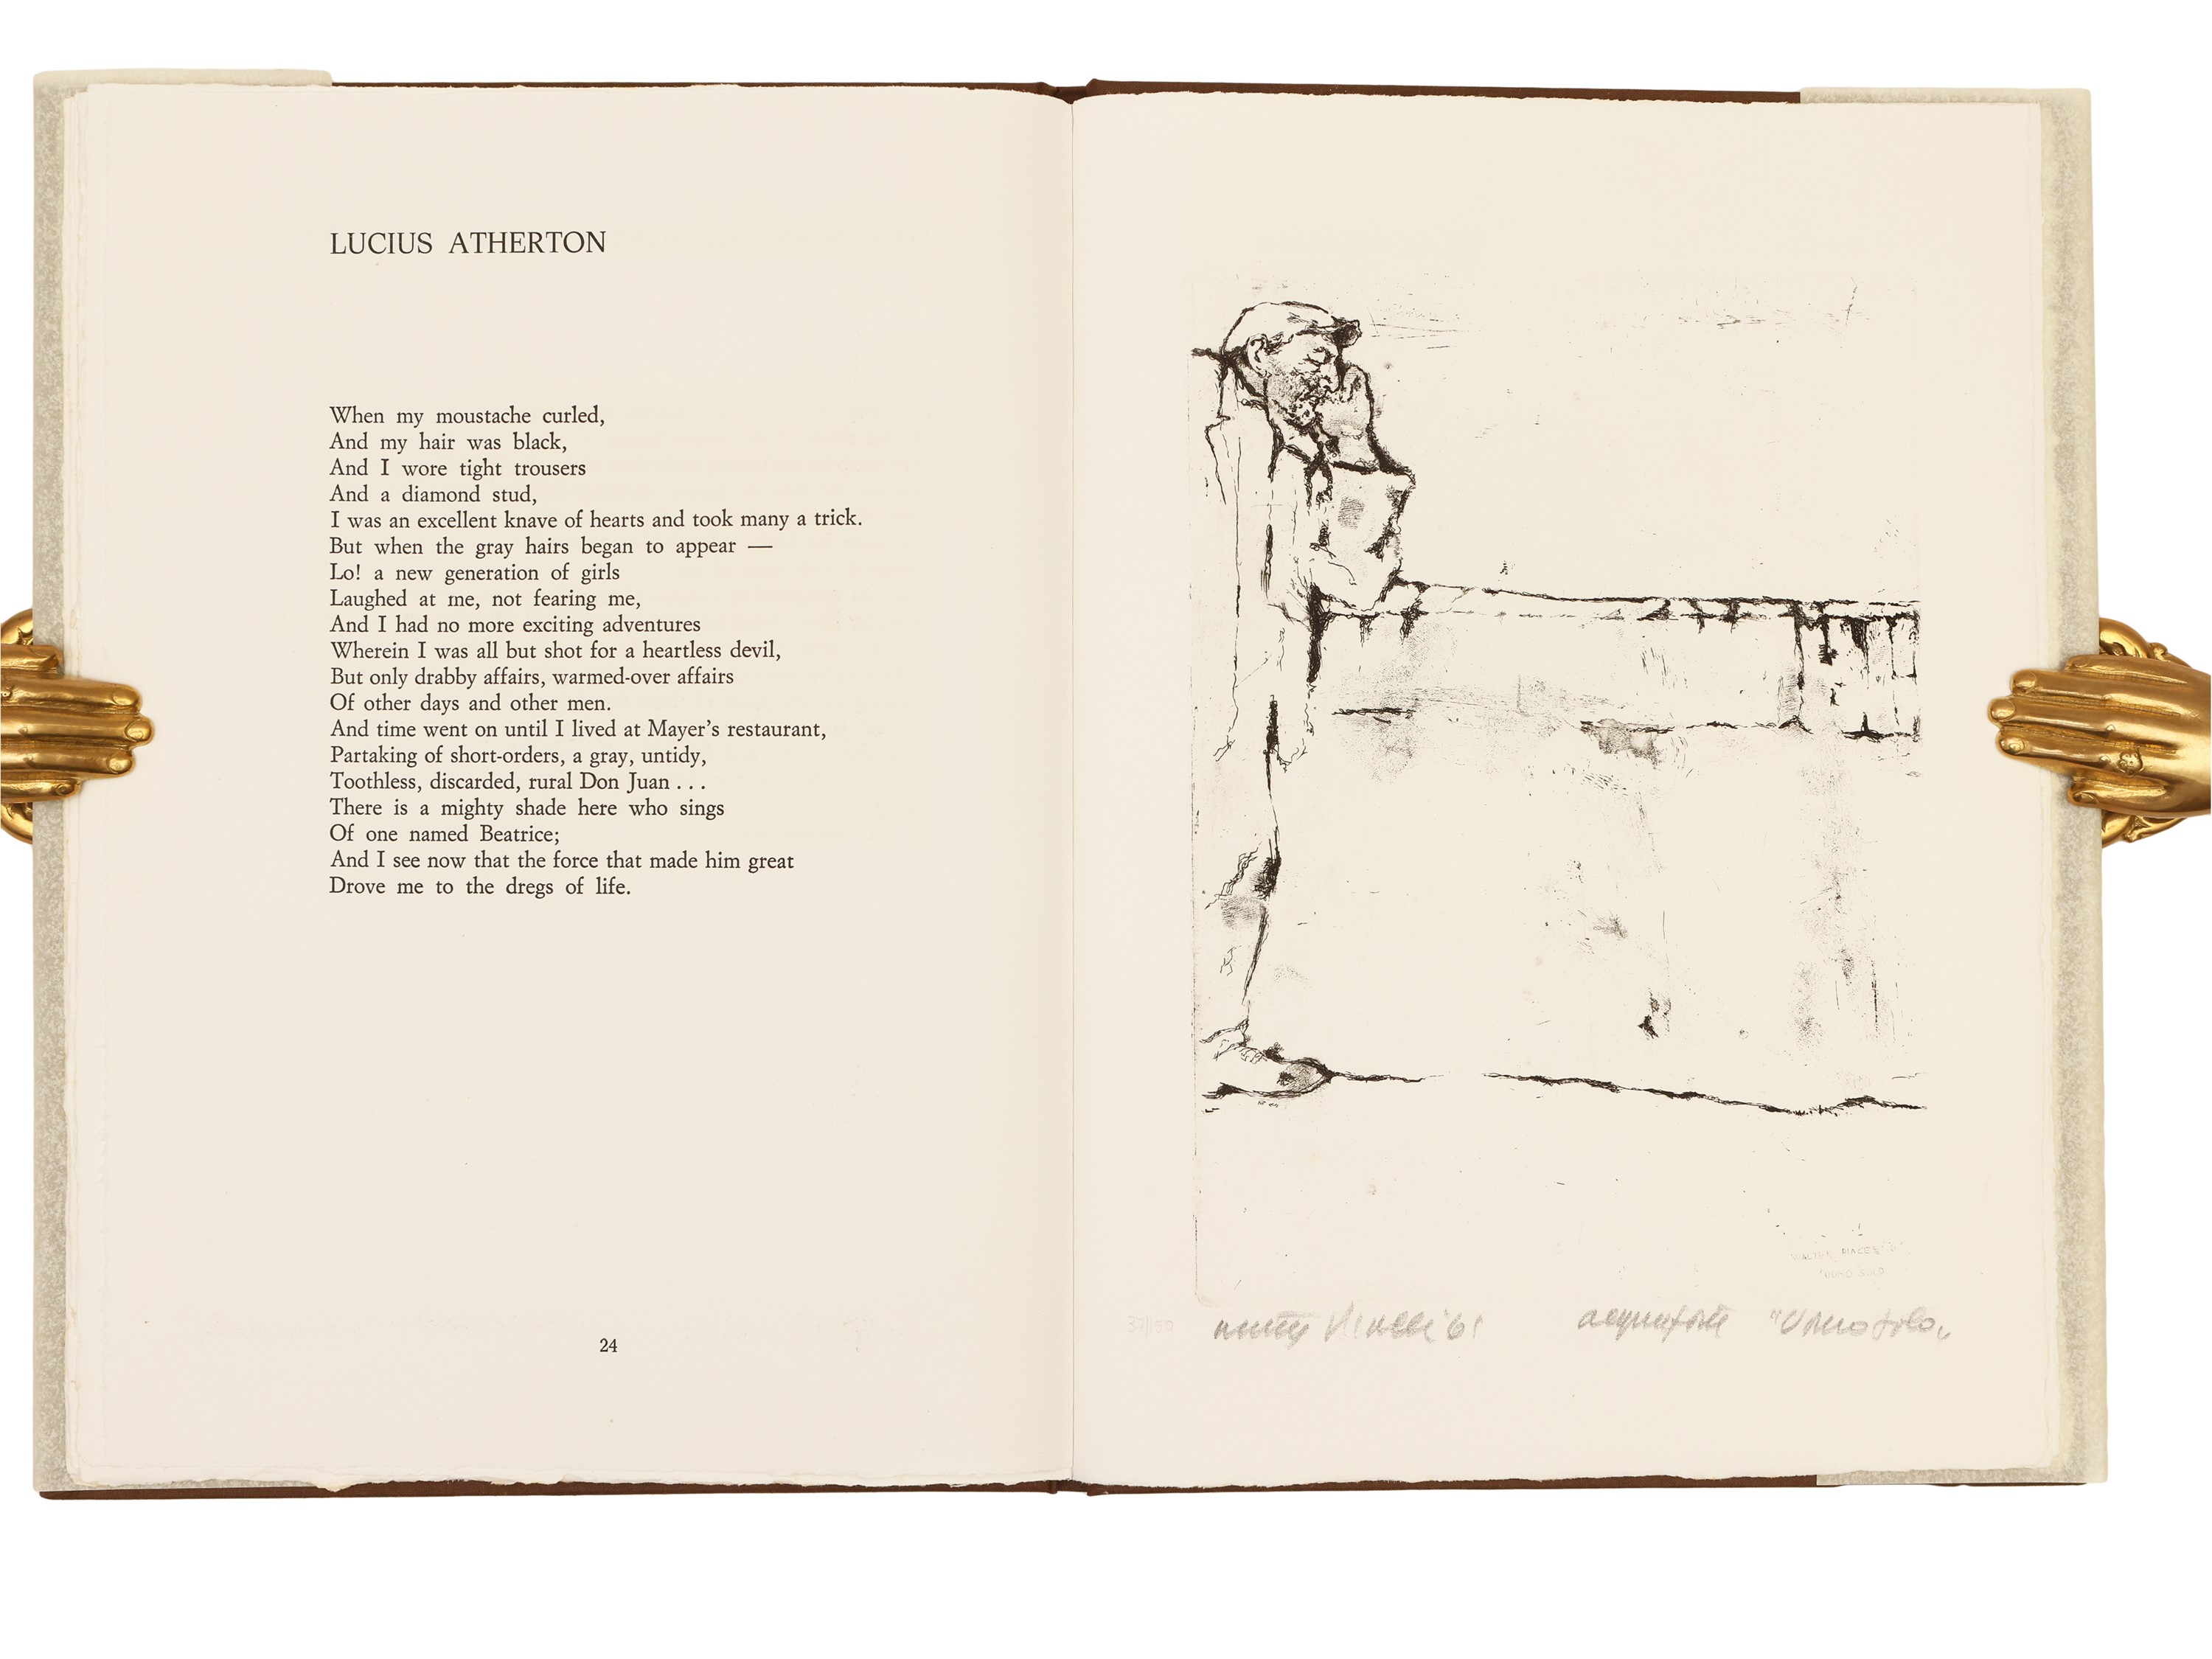 LUCIUS ATHERTON
When my moustache curled,
And my hair was black,
And I wore tight trousers
And a diamond stud,
I was an excellent knave of hearts and took many a trick.
But when the gray hairs began to appear —
Lo! a new generation of girls
Laughed at me, not fearing me,
And I had no more exciting adventures
Wherein I was all but shot for a heartless devil,
But only drabby affairs, warmed-over affairs
Of other days and other men.
And time went on until I lived at Mayer's restaurant,
Partaking of short-orders, a gray, untidy,
Toothless, discarded, rural Don Juan . . .
There is a mighty shade here who sings
Of one named Beatrice;
And I see now that the force that made him great
Drove me to the dregs of life.
24
acquaforte "Uomo solo"